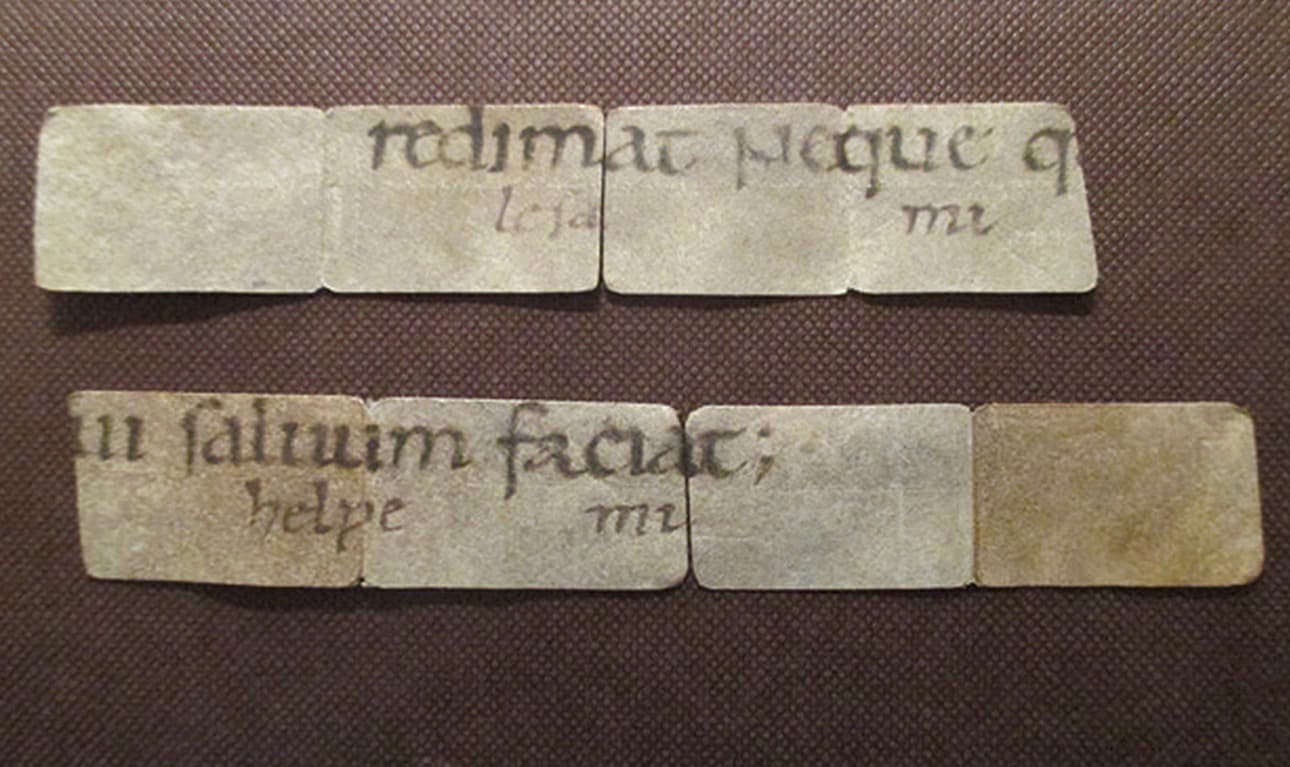 redimat neque q
lesa mi
ui saluum faciat;
helpe mi